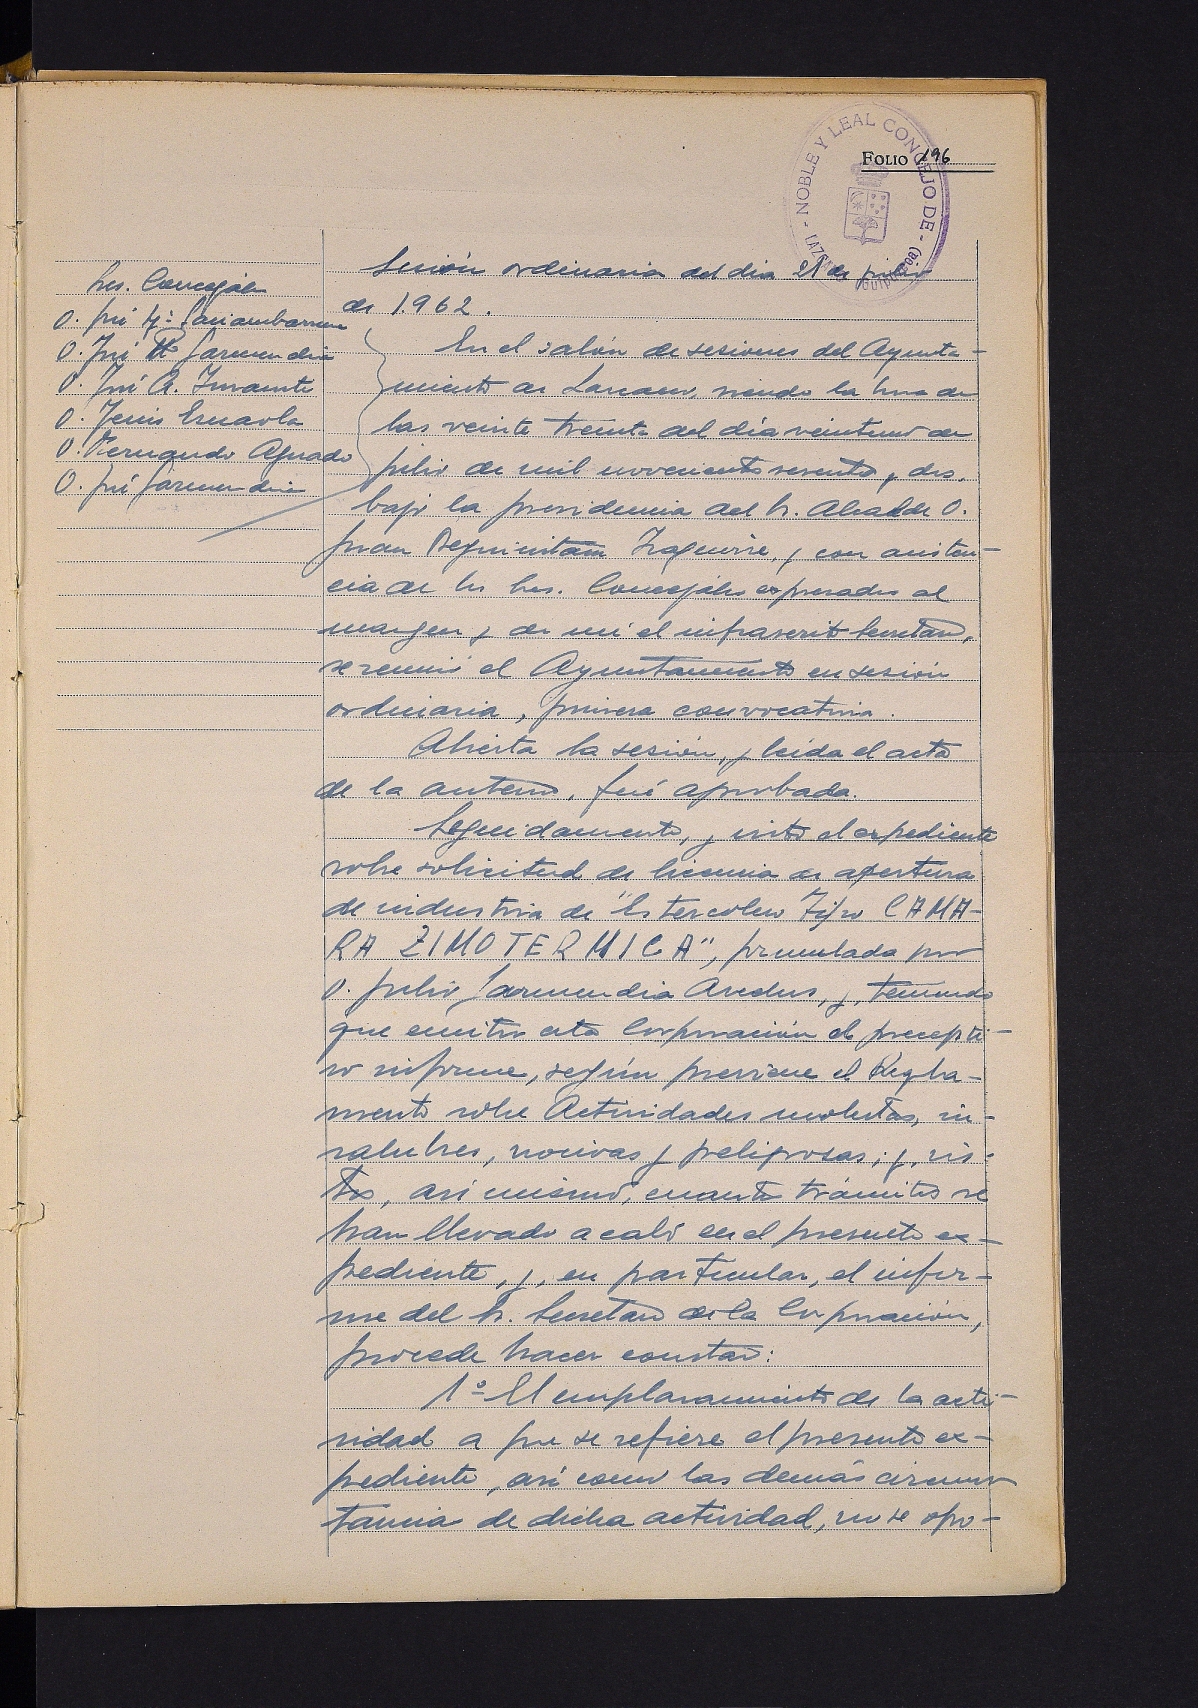 NOBLE Y LEAL CONCEJO DE
FOLIO 196
Sres. Concejales
D. José Mª Garciambarrena
D. José M. Garmendia
D. José A. Insausti
D. Jesús Urcaola
D. Fernando Aguado
D. José Garmendia
Sesión ordinaria del dia 21 de julio
de 1.962.
En el salón de sesiones del Ayunta-
miento de Lazcano, siendo la hora de
las veinte treinta del día veintiuno de
julio de mil novecientos sesenta y dos,
bajo la presidencia del Sr. Alcalde D.
Juan Beguiristain Izaguirre, y con asisten-
cia de los Sres. Concejales expresados al
margen y de mi el infrascrito Secretario,
se reunió el Ayuntamiento en sesión
ordinaria, primera convocatoria.
Abierta la sesión, y leída el acta
de la anterior, fué aprobada.
Seguidamente, y visto el expediente
sobre solicitud de licencia de apertura
de industria de "Estercolero Tipo CAMA-
RA ZIMOTERMICA", formulada por
D. Julio Garmendia, y, teniendo
que emitir esta Corporación el precepti-
vo informe, según previene el Regla-
mento sobre Actividades molestas, in-
salubres, nocivas y peligrosas; y, vis-
tos, asi mismo, cuantos trámites se
han llevado a cabo en el presente ex-
pediente, y, en particular, el infor-
me del Sr. Secretario de la Corporación,
procede hacer constar:
1º El emplazamiento de la acti-
vidad a que se refiere el presente ex-
pediente, asi como las demás circuns
tancia de dicha actividad, no se opo-